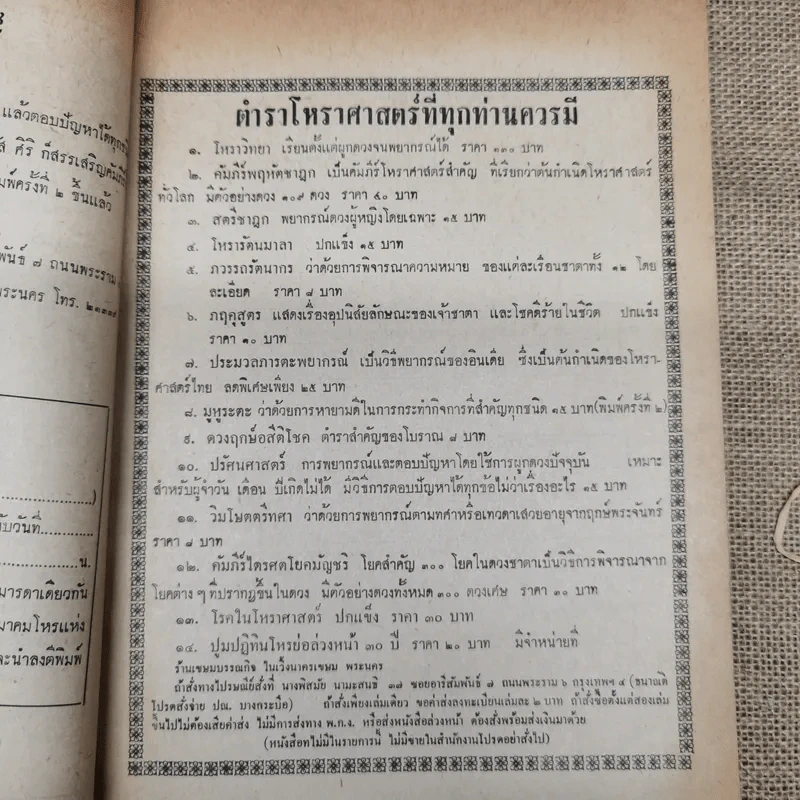 แล้วตอบปัญหาได้ทุกข้
ศิริ ก็สรรเสริญคัมภีร์
พิมพ์ครั้งที่ ๒ ขึ้นแล้ว
พันธ์ ๗ ถนนพระราม
พระนคร โทร.
)
วันที่
น.
มารดาเดียวกัน
มาคมโหรแห่ง
จะนำลงตีพิมพ์
ตำราโหราศาสตร์ที่ทุกท่านควรมี
๑. โหราวิทยา เรียนตั้งแต่ผูกดวงจนพยากรณ์ได้ ราคา ๑๓๐ บาท
๒. คัมภีร์พฤหัตชาฎก เป็นคัมภีร์โหราศาสตร์สำคัญ ที่เรียกว่าต้นกำเนิดโหราศาสตร์
ทั่วโลก มีตัวอย่างดวง ๑๐๙ ดวง ราคา ๔๐ บาท
๓. สตรีชาฎก พยากรณ์ดวงผู้หญิงโดยเฉพาะ ๑๕ บาท
๔. โหรารัตนมาลา ปกแข็ง ๑๕ บาท
๕. ภวรรถรัตนากร ว่าด้วยการพิจารณาความหมาย ของแต่ละเรือนชาตาทั้ง ๑๒ โดย
ละเอียด ราคา ๘ บาท
๖. ภฤคุสูตร แสดงเรื่องอุปนิสัยลักษณะของเจ้าชาตา และโชคดีร้ายในชีวิต ปกแข็ง
ราคา ๑๐ บาท
๗. ประมวลภารตะพยากรณ์ เป็นวิธีพยากรณ์ของอินเดีย ซึ่งเป็นต้นกำเนิดของโหรา-
ศาสตร์ไทย ลดพิเศษเพียง ๒๕ บาท
๘. มูหูระตะ ว่าด้วยการหายามดีในการกระทำกิจการที่สำคัญทุกชนิด ๑๕ บาท(พิมพ์ครั้งที่ ๒)
๙. ดวงฤกษ์อสีติโชค ตำราสำคัญของโบราณ ๘ บาท
๑๐. ปรัศนศาสตร์ การพยากรณ์และตอบปัญหาโดยใช้การผูกดวงปัจจุบัน เหมาะ
สำหรับผู้จำวัน เดือน ปีเกิดไม่ได้ มีวิธีการตอบปัญหาได้ทุกข้อไม่ว่าเรื่องอะไร ๑๕ บาท
๑๑. วิมโษตตรีทศา ว่าด้วยการพยากรณ์ตามทศาหรือเทวดาเสวยอายุจากฤกษ์พระจันทร์
ราคา ๘ บาท
๑๒. คัมภีร์ไตรศตโยคมัญชรี โยคสำคัญ ๓๐๐ โยคในดวงชาตาเป็นวิธีการพิจารณาจาก
โยคต่าง ๆ ที่ปรากฏขึ้นในดวง มีตัวอย่างดวงทั้งหมด ๓๐๐ ดวงเศษ ราคา ๓๐ บาท
๑๓. โรคในโหราศาสตร์ ปกแข็ง ราคา ๓๐ บาท
๑๔. ปูมปฏิทินโหรย่อล่วงหน้า ๓๐ ปี ราคา ๒๐ บาท มีจำหน่ายที่
ร้านเขษมบรรณกิจ ในเวิ้งนาครเขษม พระนคร
ถ้าสั่งทางไปรษณีย์สั่งที่ นางพิสมัย นามะสนธิ ๓๗ ซอยอารีสัมพันธ์ ๗ ถนนพระราม ๖ กรุงเทพฯ ๔ (ธนาณัติ
โปรดสั่งจ่าย ปณ. บางกระบือ) ถ้าสั่งเพียงเล่มเดียว ขอค่าส่งลงทะเบียนเล่มละ ๒ บาท ถ้าสั่งซื้อตั้งแต่สองเล่ม
ขึ้นไปไม่ต้องเสียค่าส่ง ไม่มีการส่งทาง พ.ก.ง. หรือส่งหนังสือล่วงหน้า ต้องสั่งพร้อมส่งเงินมาด้วย
(หนังสือที่ไม่มีในรายการนี้ ไม่มีขายในสำนักงานโปรดอย่าสั่งไป)